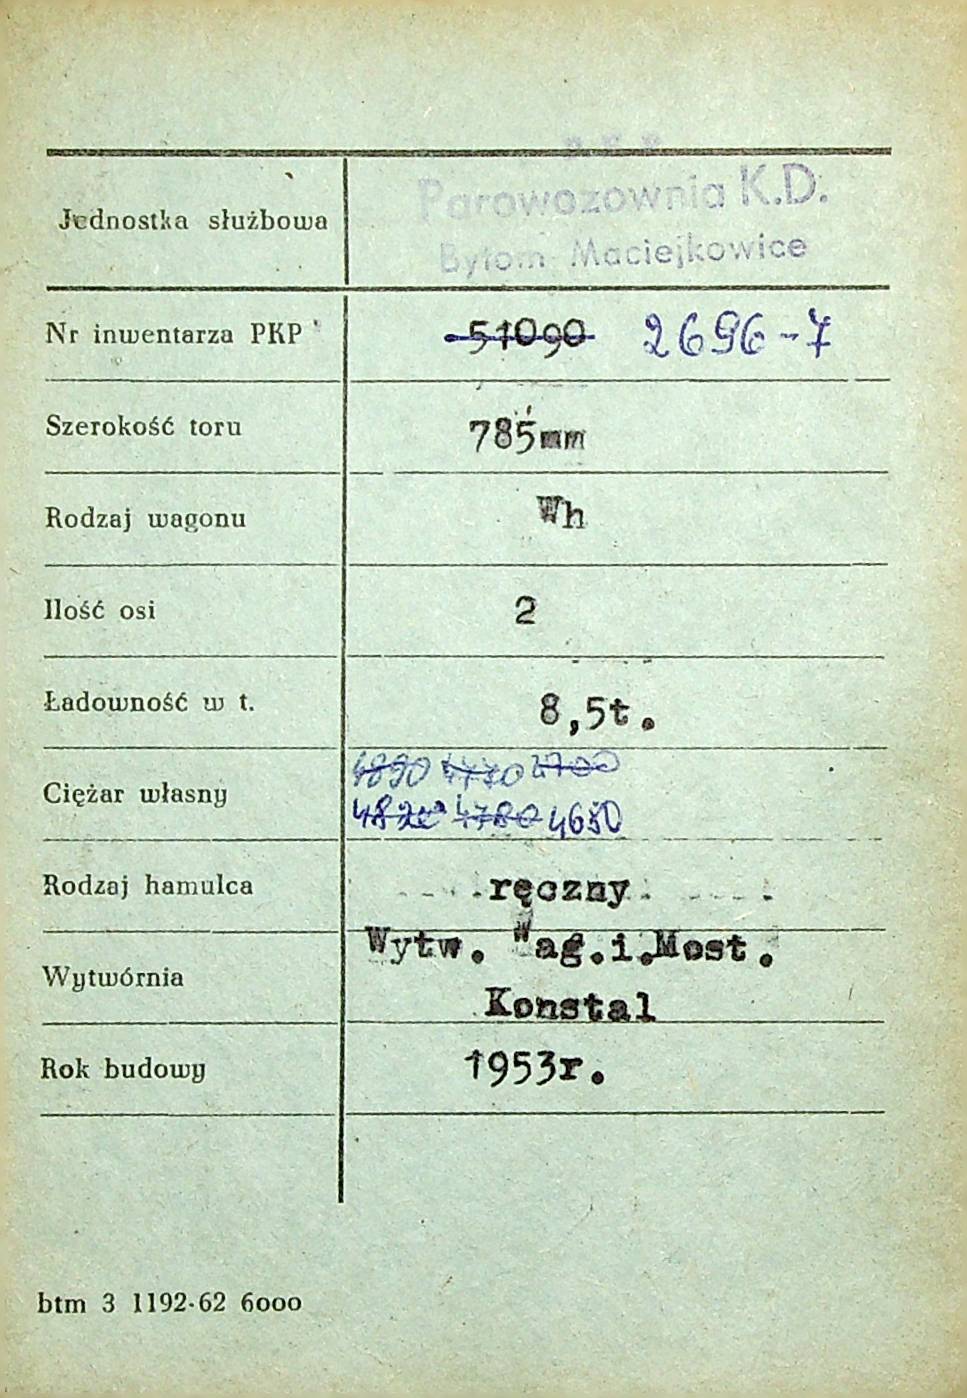 P.K.P.
Jednostka służbowa Parowozownia K.D.
Bytom Maciejkowice
Nr inwentarza PKP 51090 2696-7
Szerokość toru 785mm
Rodzaj wagonu Wh
Ilość osi 2
Ładowność w t. 8,5t.
4890 4730 4700
Ciężar własny 4780 4650
Rodzaj hamulca ręczny
Wytw. Wag.i.Most.
Wytwórnia
Konstal
Rok budowy 1953r.
btm 3 1192-62 6000